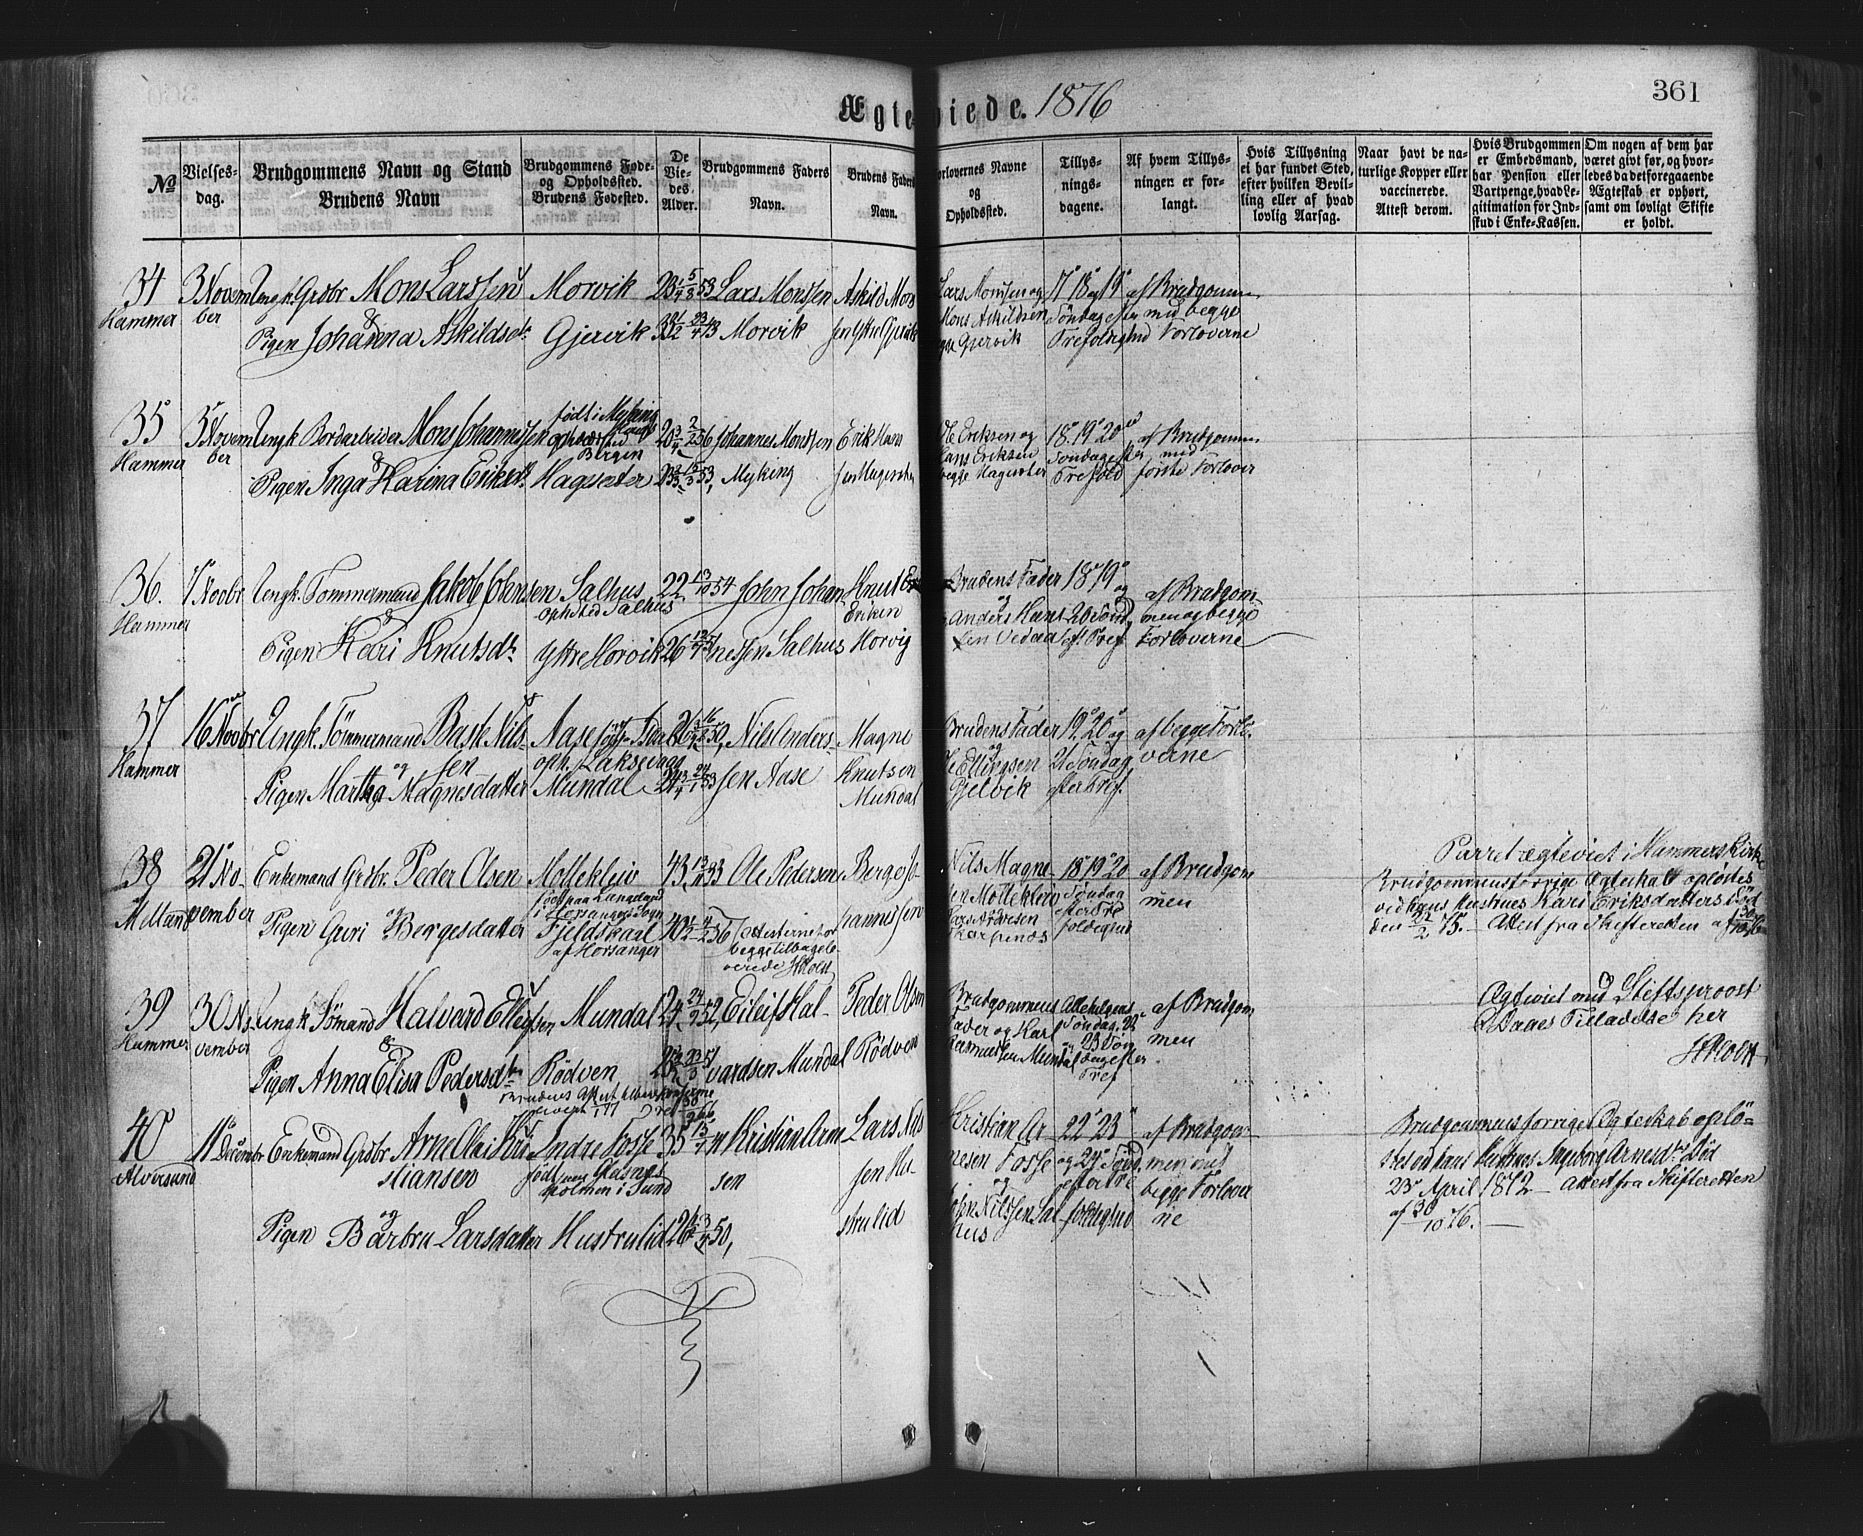 361
Ægteviede. 1876
No
Vielses-
dag.
Brudgommens Navn og Stand
Brudens Navn
Brudgommens Føde-
og Opholdssted.
Brudens Fødested.
De
Vie-
des
Alder.
Brudgommens Faders
Navn.
Brudens Faders
Navn.
Forlovernes Navne
og
Opholdssted.
Tillys-
nings-
dagene.
Af hvem Tillys-
ningen er for-
langt.
Hvis Tillysning
ei har fundet Sted,
efter hvilken Bevil-
ling eller af hvad
lovlig Aarsag.
Naar havt de na-
turlige Kopper eller
vaccinerede.
Attest derom.
Hvis Brudgommen
er Embedsmand,
har Pension eller
Vartpenge, hvad Le-
gitimation for Ind-
skud i Enke-Kassen.
Om nogen af dem har
været givt før, og hvor-
ledes da det foregaaende
Ægteskab er ophørt,
samt om lovligt Skifte
er holdt.
34
Hammer
3 Novem
ber
Ungk. Grdbr Mons Larssen
&
Pigen Johanna Askildsdr
Morvik
Gjervik
23 53
32 43
Lars Monssen
Morvik
Askild Mons
sen Ytre Gjervik
Lars Monssen og
Mons Askildsen
Gjervik
17 18 og 19
Søndag efter
Trefoldighed
af Brudgommen
med begge
Forloverne
35
Hammer
5 Novem
ber
Ungk. Bordarbeider Mons Johannessen
&
Pigen Inga Karina Eriksdr
født i Myking
Bergen
Hagsæter
20 56
23 53
Johannes Monssen
Myking
Erik Hans
sen
Eriksen og
Hans Eriksen
begge
18 19 20
Søndag efter
Trefold
af Brudgommen
med
første Forlover
36.
Hammer
7 Novbr
Ungk. Tømmermand Jakob Johnsen
&
Pigen Kari Knutsdr
Salhus
ophsted Salhus
Ytre Morvik
22 13/10 54
26
John Johan
nessen Salhus
Knut
Eriken
Morvig
Brudens Fader
og
Anders Hans
sen Vedaa
18 19
og
20 Sønd
eft Tref
af Brudgom
men og begge
Forloverne
37
Hammer
16 Novbr
Ungk. Tømmermand Baste Nils-
sen
og
Pigen Martha Magnesdatter
Aase
oph. Laksevaag
Mundal
26 50,
24 53
Nils Anders-
sen Aase
Magne
Knutsen
Mundal
Brudens Fader
og
Ellingsen
Gjelvik
19 20 og
21 Søndag
efter Tref.
af begge Forlo
verne
38
Meland
21 No-
vember
Enkemand Grdbr. Peder Olsen
og
Pigen Guri Bergesdatter
Mollekleiv
født paa
i Hosangers Sogn
Fjeldskaal
af Hosanger
43 33
40 36
Ole Pedersen
Attesterne for
begge tilbagele-
verede
Berge Jo-
hannissen
Nils Magne
sen Mollekleiv
18 19 20
Søndag
efter Tre
foldighed
af Brudgom
men
Parret ægteviet i Hammers Kirke
Brudgommens forrige Ægteskab opløstes
ved hans Hustrues Kari Eriksdatters Død
den 22/2 75. - Attest fra Skifteretten af
39
Hammer
30 No
vember
Ungk. Sømand Halvard Eileifsen
&
Pigen Anna Elisa Pedersdtr
Mundal
Rødven
24 24/9 52,
25 51
Eileif Hal-
vardsen Mundal
Peder Olsen
Rødven
Brudgommens
Fader og Karl
Rasmussen Mundal
Allehelgens
Søndag, 22
og 23 Søn
dag efter
Tref
af Brudgom
men
Ægteviet med Stiftsprovst
Dages Tilladelse her
40
Alversund
11 Decembr
Enkemand Grdbr Arne Olai Kri
stiansen
og
Pigen Barbru Larsdatter
Indre Fosse
født paa
holmen i Sund
Hustrulid
35 41
26 50,
Kristian Arne
sen
Lars Nils
sen Hu-
strulid
Kristian Ar
nesen Fosse
og
John Nilssen Sal
hus
22 23
og 24 Sønd
efter Tre
foldighed
af Brudgom
men med
begge Forlover
ne
Brudgommens forriget Ægteskab oplø-
stes ved hans Hustrues Ingeborg Arnesdr Død
23 April 1872 - Attest fra Skifteretten
af 30/10 76. -